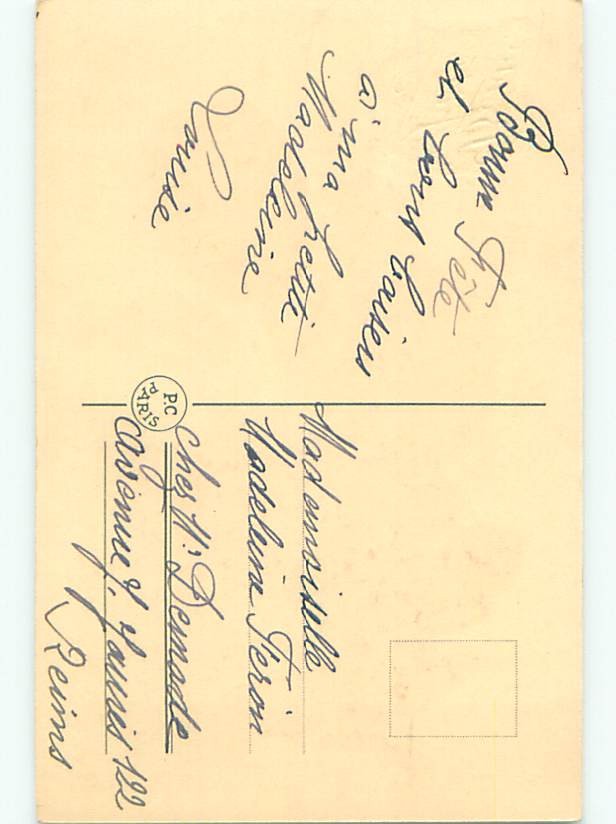 Bonne Fête
et bons baisers
à ma petite
Madeleine
Louise
P.C
PARIS
Mademoiselle
Madeleine Féron
chez Mr Demade
avenue J. Jaurès 122
Reims